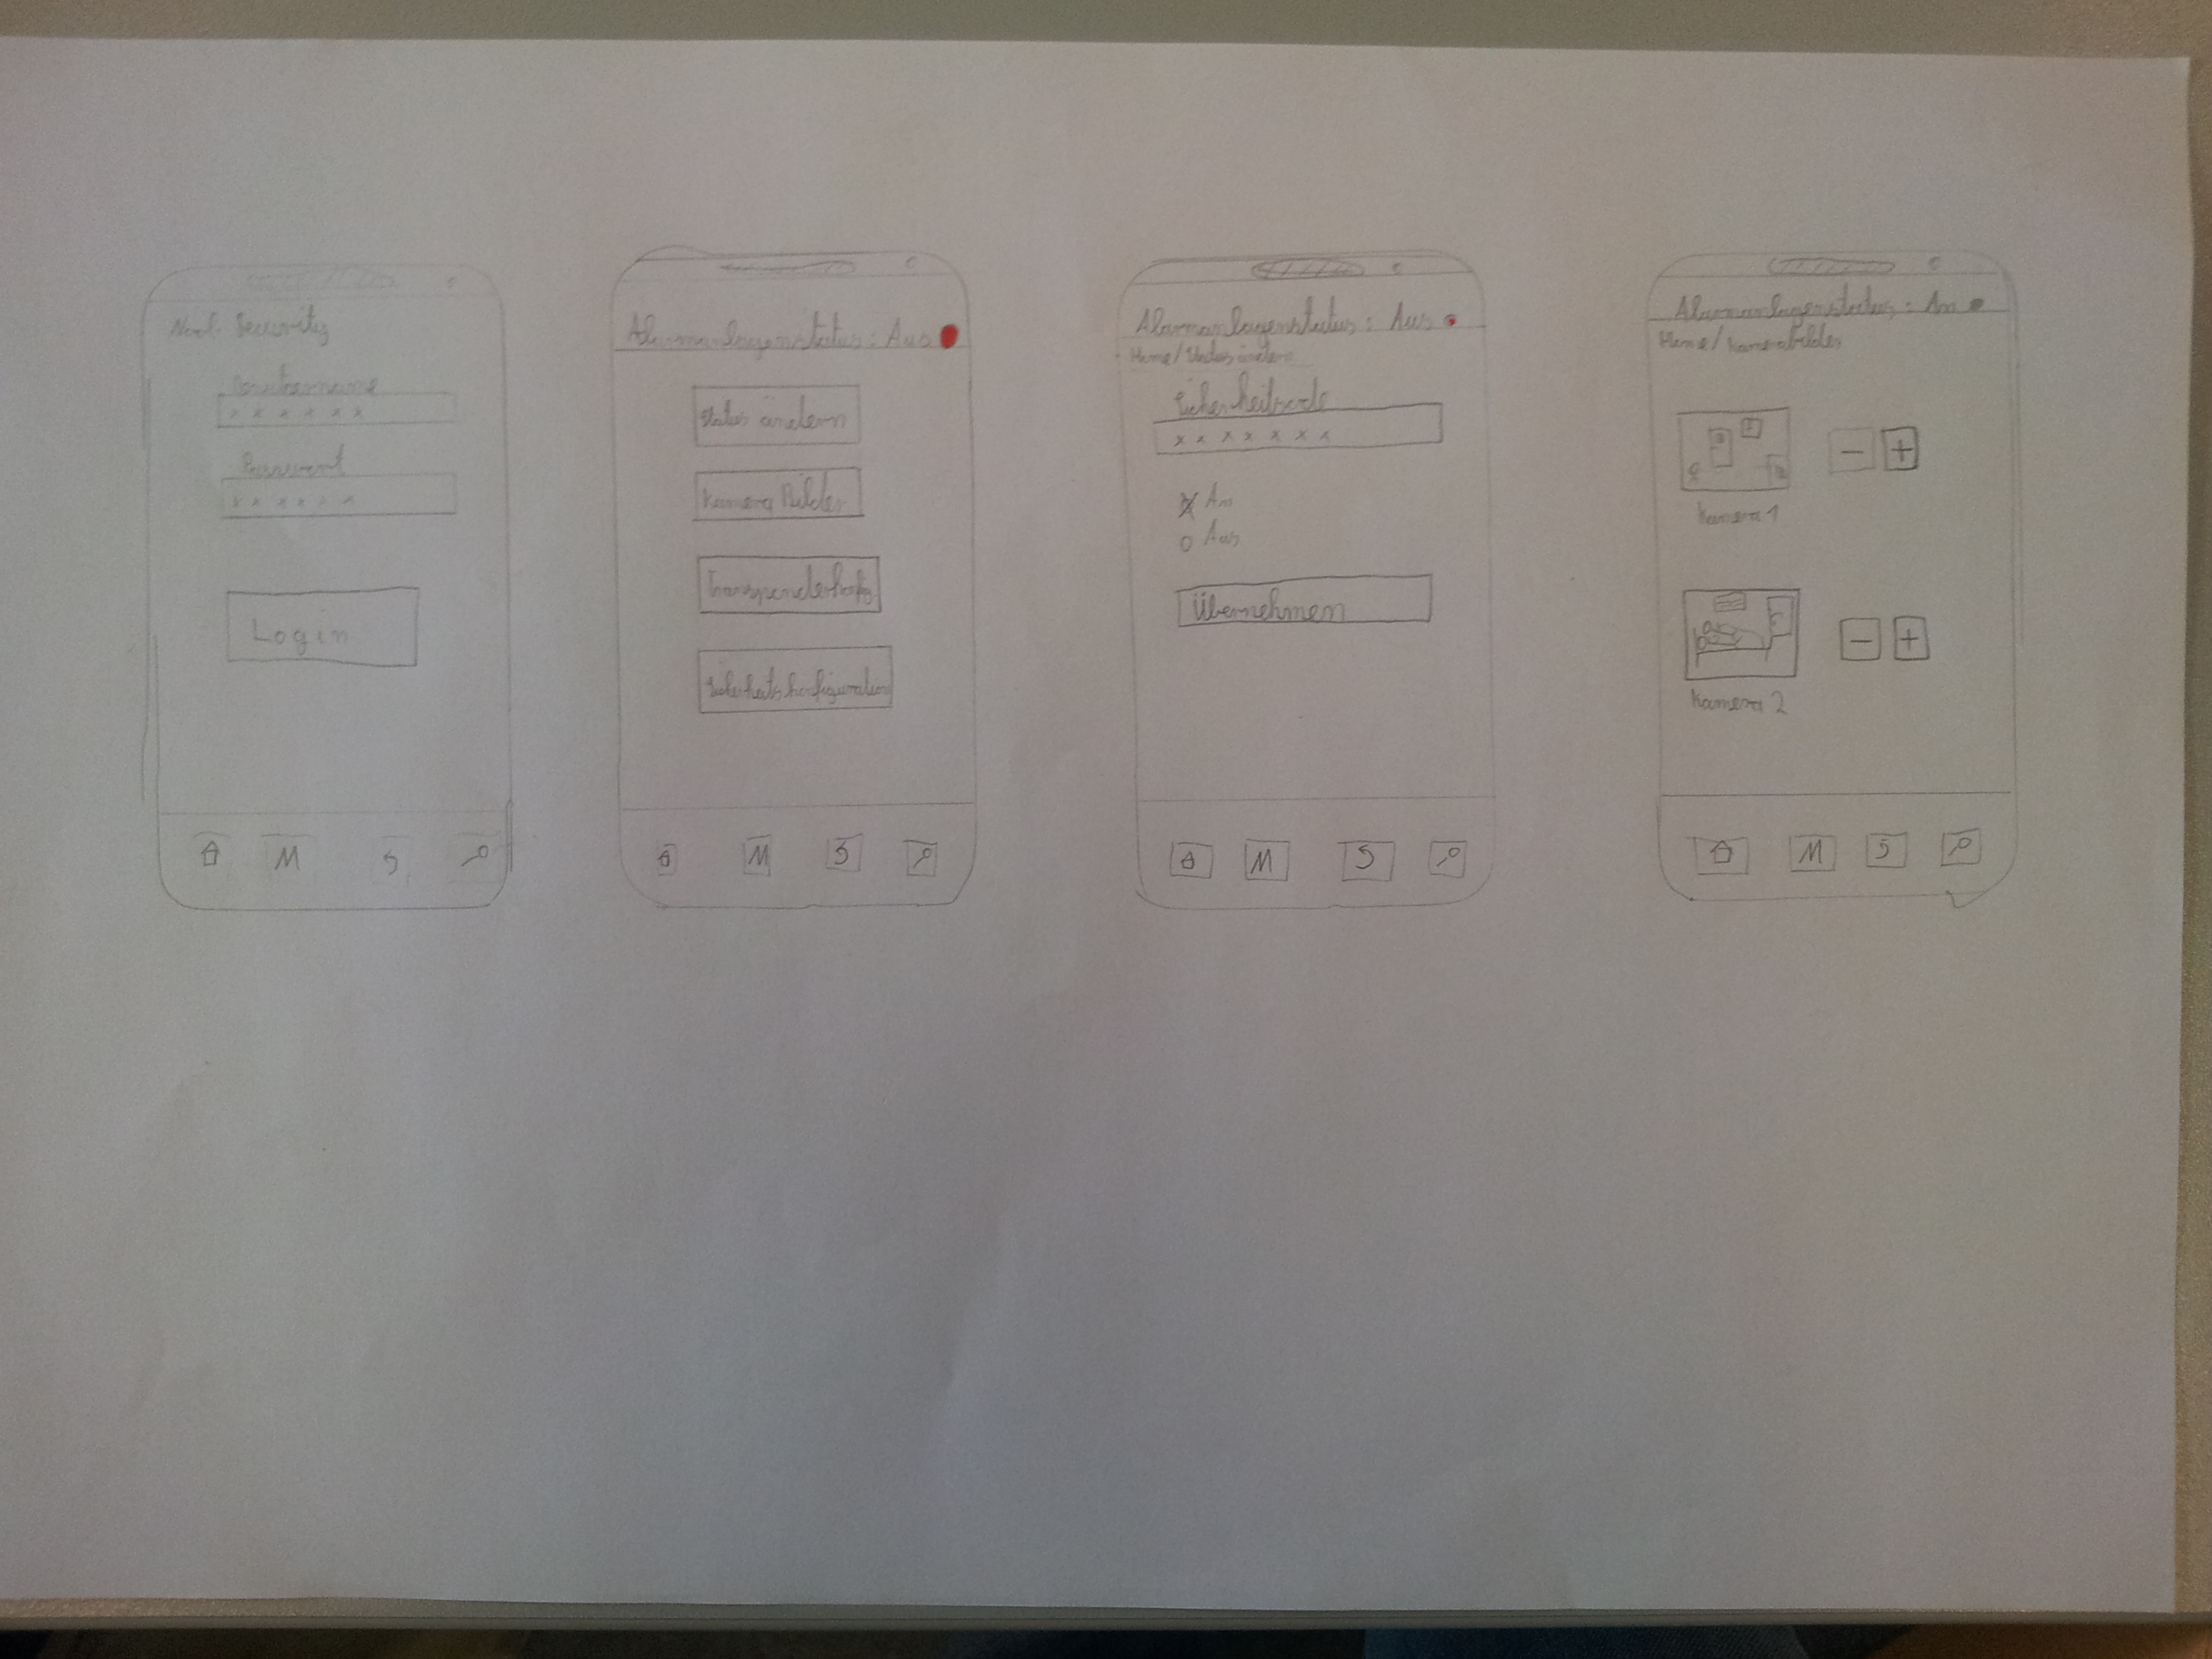 Security
Benutzername
x x x x x x
Passwort
x x x x x x
Login
M
S
Alarmanlagenstatus: Aus
Status ändern
Kamera Bilder
Sicherheitskonfiguration
M
S
Alarmanlagenstatus: Aus
Home/Status ändern
Sicherheitscode
x x x x x x x
An
Aus
Übernehmen
M
S
Alarmanlagenstatus: An
Home/Kamerabilder
- +
Kamera 1
- +
Kamera 2
M
S